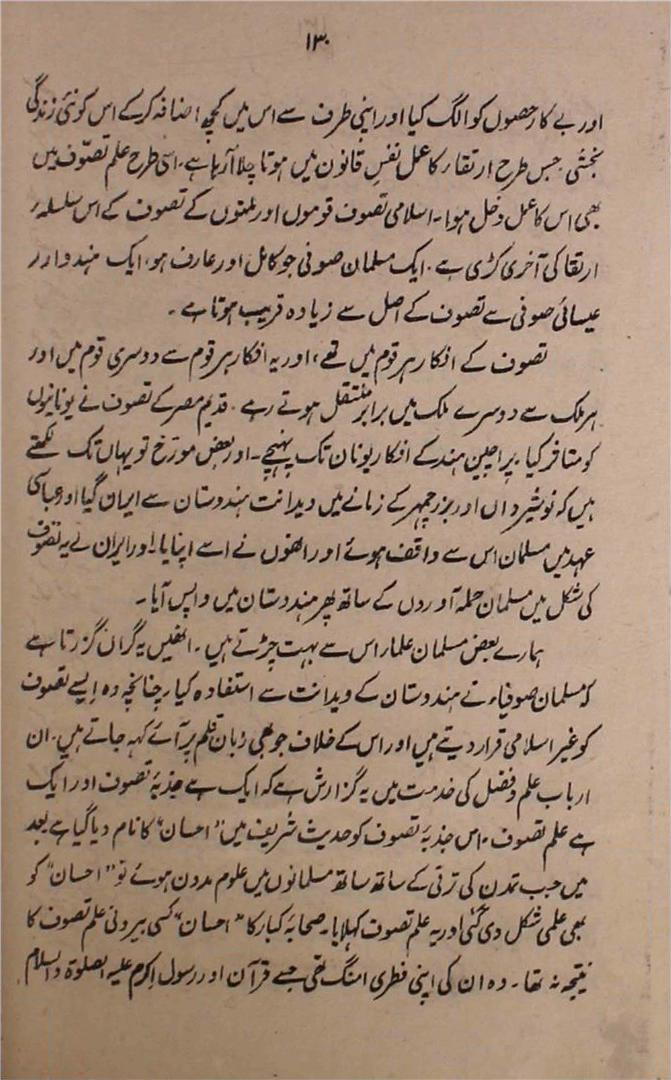 ۱۳۰
اور بے کار حصوں کو الگ کیا اور اپنی طرف سے اس میں کچھ اضافہ کرکے اس کو نئی زندگی
بخشی جس طرح ارتقار کا عمل نفسِ قانون میں ہوتا چلا آرہا ہے۔ اسی طرح علم تصوّف میں
بھی اس کا عمل دخل ہوا۔ اسلامی تصوف قوموں اور ملتوں کے تصوف کے اس سلسلۂ
ارتقا کی آخری کڑی ہے۔ ایک مسلمان صوفی جو کامل اور عارف ہو، ایک ہندو اور
عیسائی صوفی سے تصوف کے اصل سے زیادہ قریب ہوتا ہے۔
تصوف کے افکار ہر قوم میں تھے، اور یہ افکار ہر قوم سے دوسری قوم میں اور
ہر ملک سے دوسرے ملک میں برابر منتقل ہوتے رہے۔ قدیم مصر کے تصوف نے یونانیوں
کو متاثر کیا۔ پراچین ہند کے افکار یونان تک پہنچے۔ اور بعض مورّخ تو یہاں تک لکھتے
ہیں کہ نوشیرواں اور بزرجمہر کے زمانے میں ویدانت ہندوستان سے ایران گیا اور عباسی
عہد میں مسلمان اس سے واقف ہوئے اور انھوں نے اسے اپنایا۔ اور ایران نے یہ تصوف
کی شکل میں مسلمان حملہ آوروں کے ساتھ پھر ہندوستان میں واپس آیا۔
ہمارے بعض مسلمان علمار اس سے بہت چڑتے ہیں۔ انھیں یہ گراں گزرتا ہے
کہ مسلمان صوفیاء نے ہندوستان کے ویدانت سے استفادہ کیا، چنانچہ وہ ایسے تصوف
کو غیر اسلامی قرار دیتے ہیں اور اس کے خلاف جو بھی زبانِ قلم پر آئے کہہ جاتے ہیں۔ ان
اربابِ علم و فضل کی خدمت میں یہ گزارش ہے کہ ایک ہے جذبۂ تصوف اور ایک
ہے علم تصوف۔ اس جذبۂ تصوف کو حدیث شریف میں "احسان" کا نام دیا گیا ہے بعد
میں جب تمدن کی ترقی کے ساتھ ساتھ مسلمانوں میں علوم مدون ہوئے تو "احسان" کو
بھی علمی شکل دی گئی اور یہ علم تصوف کہلایا۔ صحابۂ کبار کا "احسان" کسی بیرونی علم تصوف کا
نتیجہ نہ تھا۔ وہ ان کی اپنی فطری امنگ تھی جسے قرآن اور رسول اکرم علیہ الصلوٰۃ والسلام